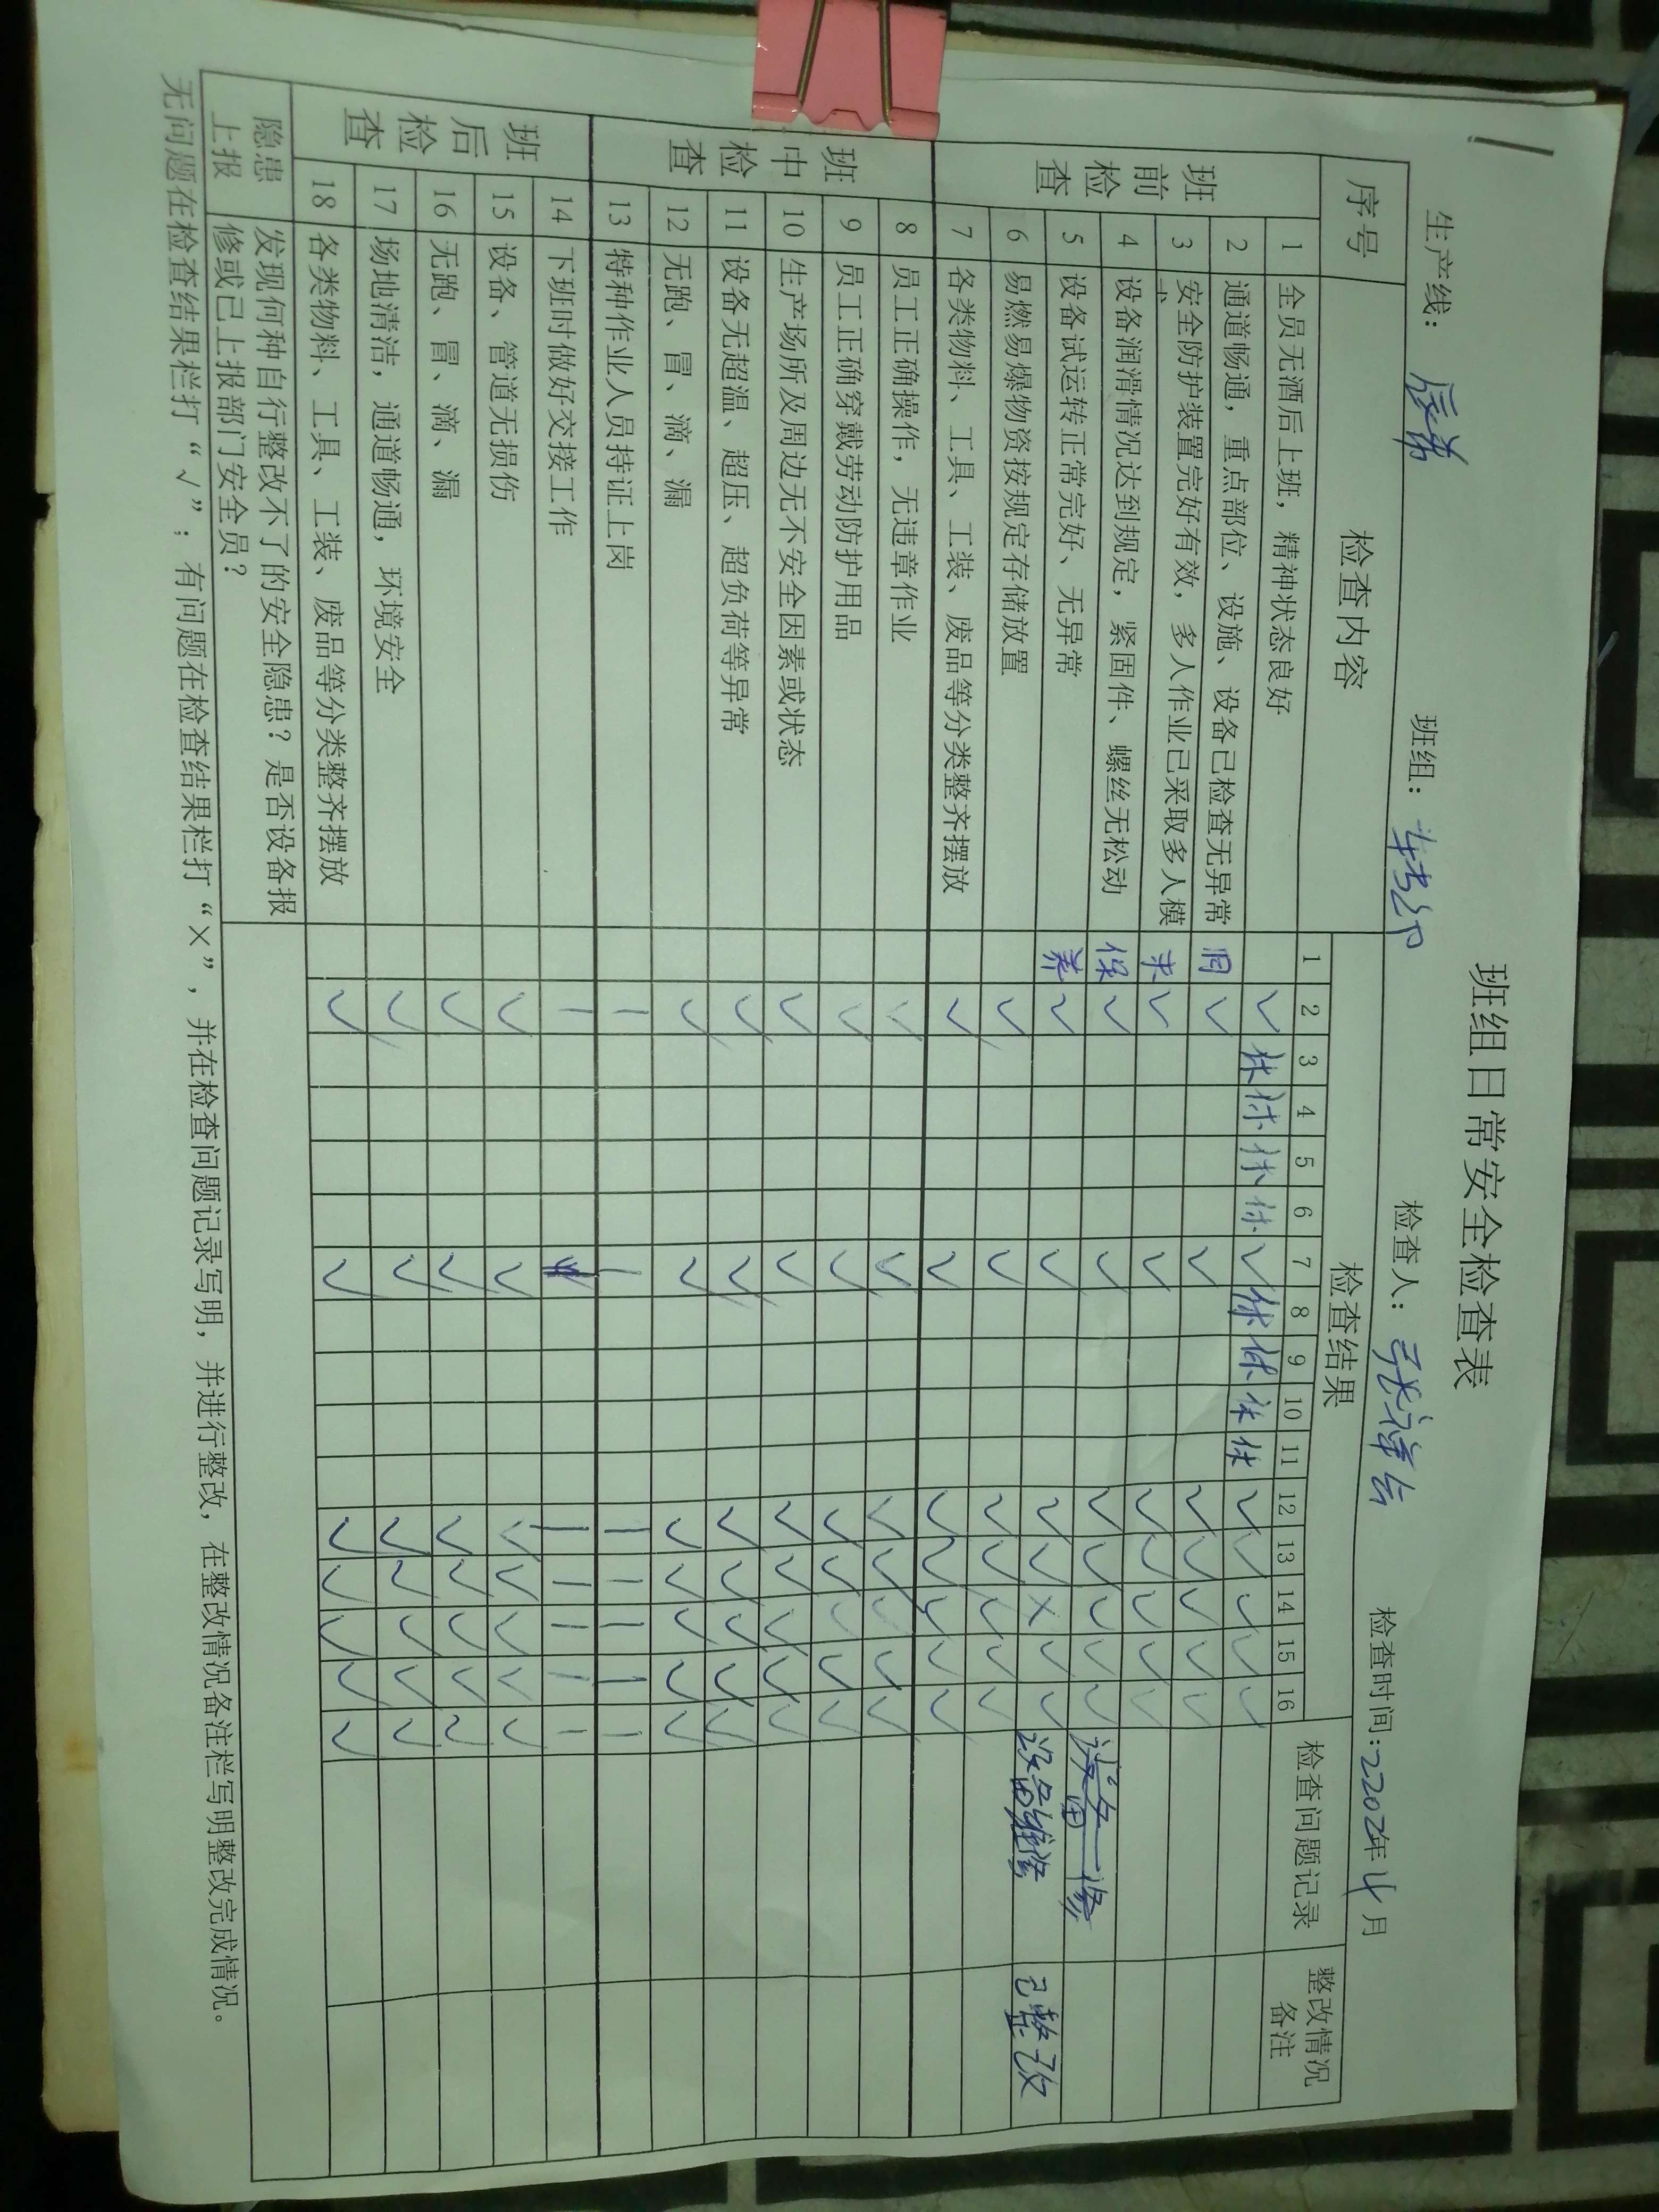 班组日常安全检查表
生产线： 班组： 检查人： 检查时间：2202年4月
序号 检查内容 检查结果 检查问题记录 整改情况备注
1 2 3 4 5 6 7 8 9 10 11 12 13 14 15 16
班前检查
1 全员无酒后上班，精神状态良好 √ 休 休 休 休 √ 休 休 休 休 √ √ √ √ √
2 通道畅通，重点部位、设施、设备已检查无异常 周 √ √ √ √ √ √ √
3 安全防护装置完好有效，多人作业已采取多人模式 末 √ √ √ √ √ √ √
4 设备润滑情况达到规定，紧固件、螺丝无松动 保 √ √ √ √ √ √ √
5 设备试运转正常完好、无异常 养 √ √ √ √ × √ √ 设备维修 已整改
6 易燃易爆物资按规定存储放置 √ √ √ √ √ √ √
7 各类物料、工具、工装、废品等分类整齐摆放 √ √ √ √ √ √ √
班中检查
8 员工正确操作，无违章作业 √ √ √ √ √ √ √
9 员工正确穿戴劳动防护用品 √ √ √ √ √ √ √
10 生产场所及周边无不安全因素或状态 √ √ √ √ √ √ √
11 设备无超温、超压、超负荷等异常 √ √ √ √ √ √ √
12 无跑、冒、滴、漏 √ √ √ √ √ √ √
13 特种作业人员持证上岗 — — — — — — —
班后检查
14 下班时做好交接工作 — — — — — —
15 设备、管道无损伤 √ √ √ √ √ √ √
16 无跑、冒、滴、漏 √ √ √ √ √ √ √
17 场地清洁，通道畅通，环境安全 √ √ √ √ √ √ √
18 各类物料、工具、工装、废品等分类整齐摆放 √ √ √ √ √ √ √
隐患上报 发现何种自行整改不了的安全隐患？是否设备报
修或已上报部门安全员？
无问题在检查结果栏打“√”；有问题在检查结果栏打“×”，并在检查问题记录写明，并进行整改，在整改情况备注栏写明整改完成情况。